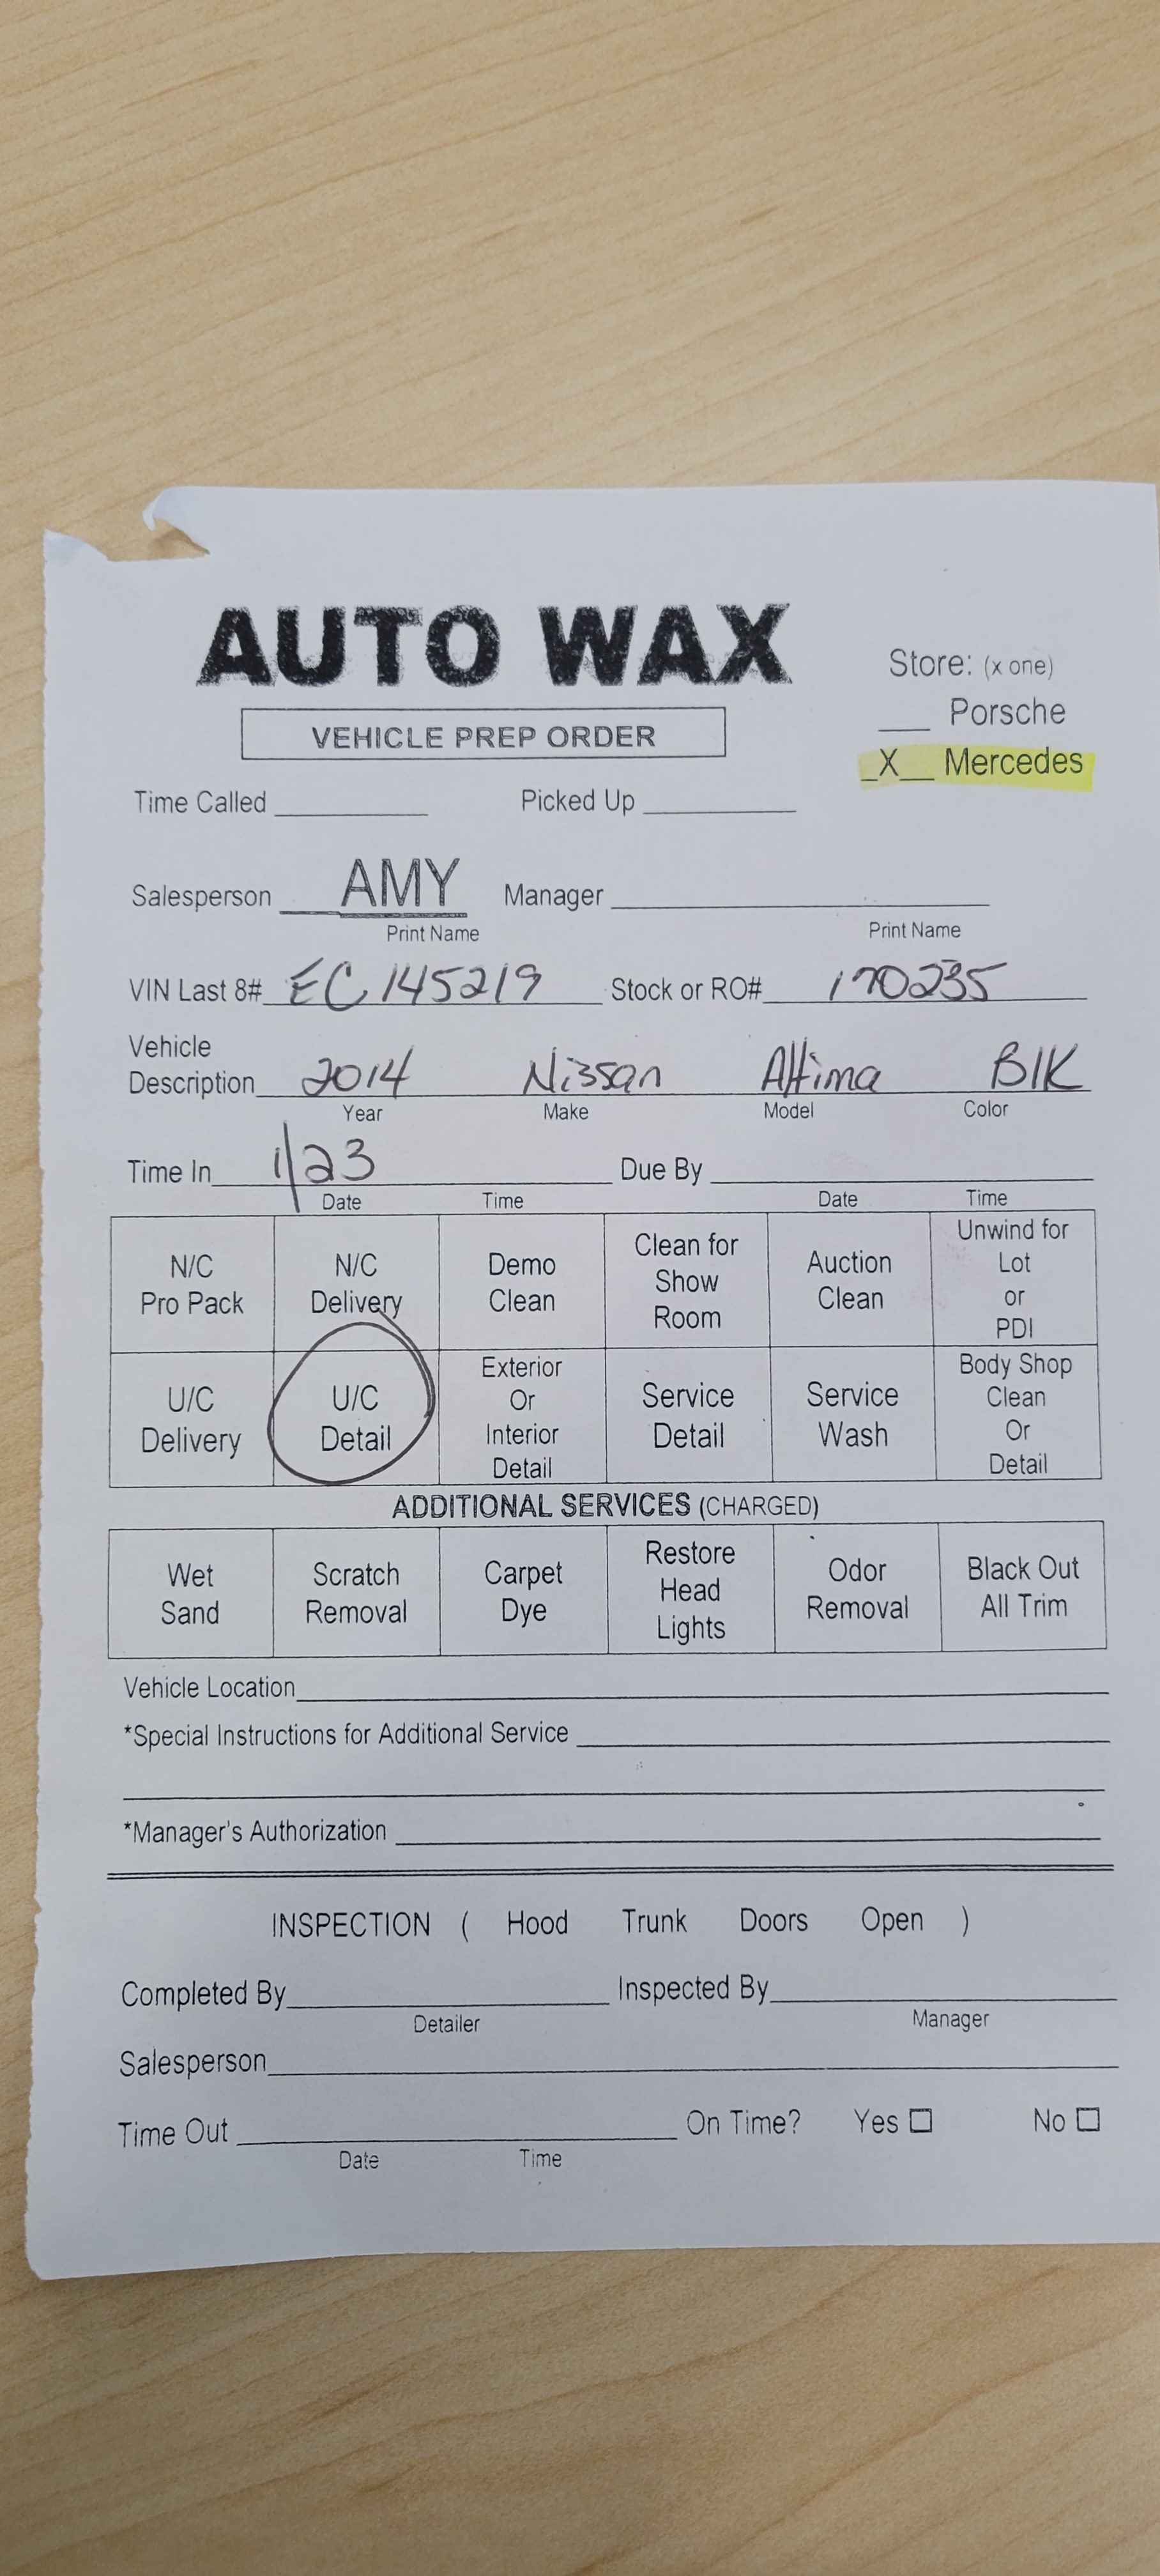 AUTO WAX
Store: (x one)
___ Porsche
VEHICLE PREP ORDER
_X__ Mercedes
Time Called __________ Picked Up __________
Salesperson ____AMY Manager __________
Print Name Print Name
VIN Last 8# EC145219 Stock or RO# 170235
Vehicle
Description 2014 Nissan Altima Blk
Year Make Model Color
Time In 1/23 Due By __________
Date Time Date Time
N/C Pro Pack
N/C Delivery
Demo Clean
Clean for Show Room
Auction Clean
Unwind for Lot or PDI
U/C Delivery
U/C Detail
Exterior Or Interior Detail
Service Detail
Service Wash
Body Shop Clean Or Detail
ADDITIONAL SERVICES (CHARGED)
Wet Sand
Scratch Removal
Carpet Dye
Restore Head Lights
Odor Removal
Black Out All Trim
Vehicle Location __________
*Special Instructions for Additional Service __________
*Manager's Authorization __________
INSPECTION ( Hood Trunk Doors Open )
Completed By __________ Inspected By __________
Detailer Manager
Salesperson __________
Time Out __________ On Time? Yes ☐ No ☐
Date Time